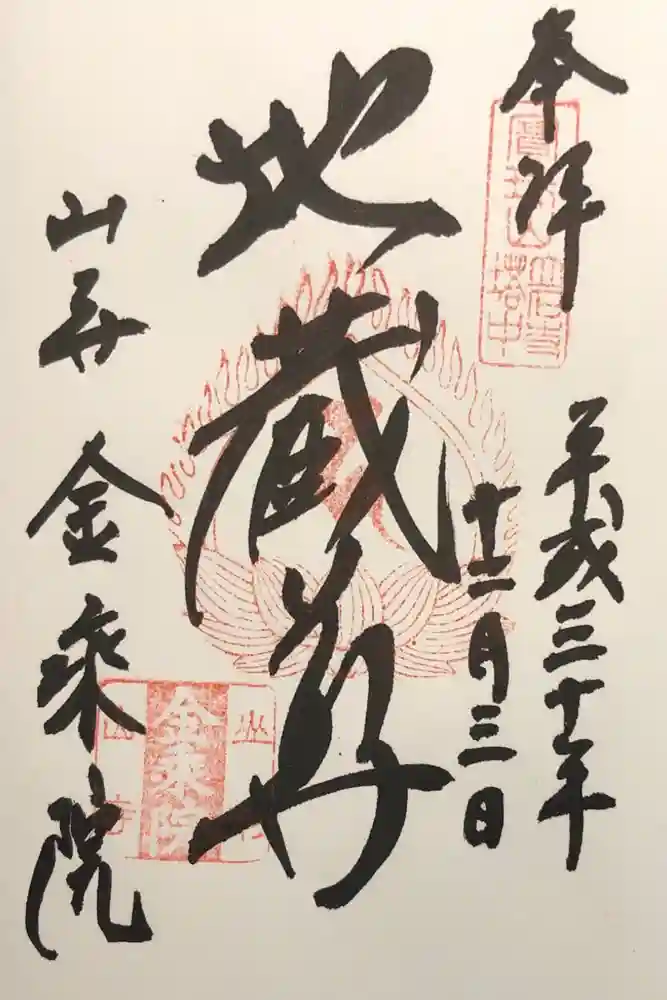 奉拝
平成三十年
十二月三日
地蔵尊
山寺 金乗院
金乗院
山寺